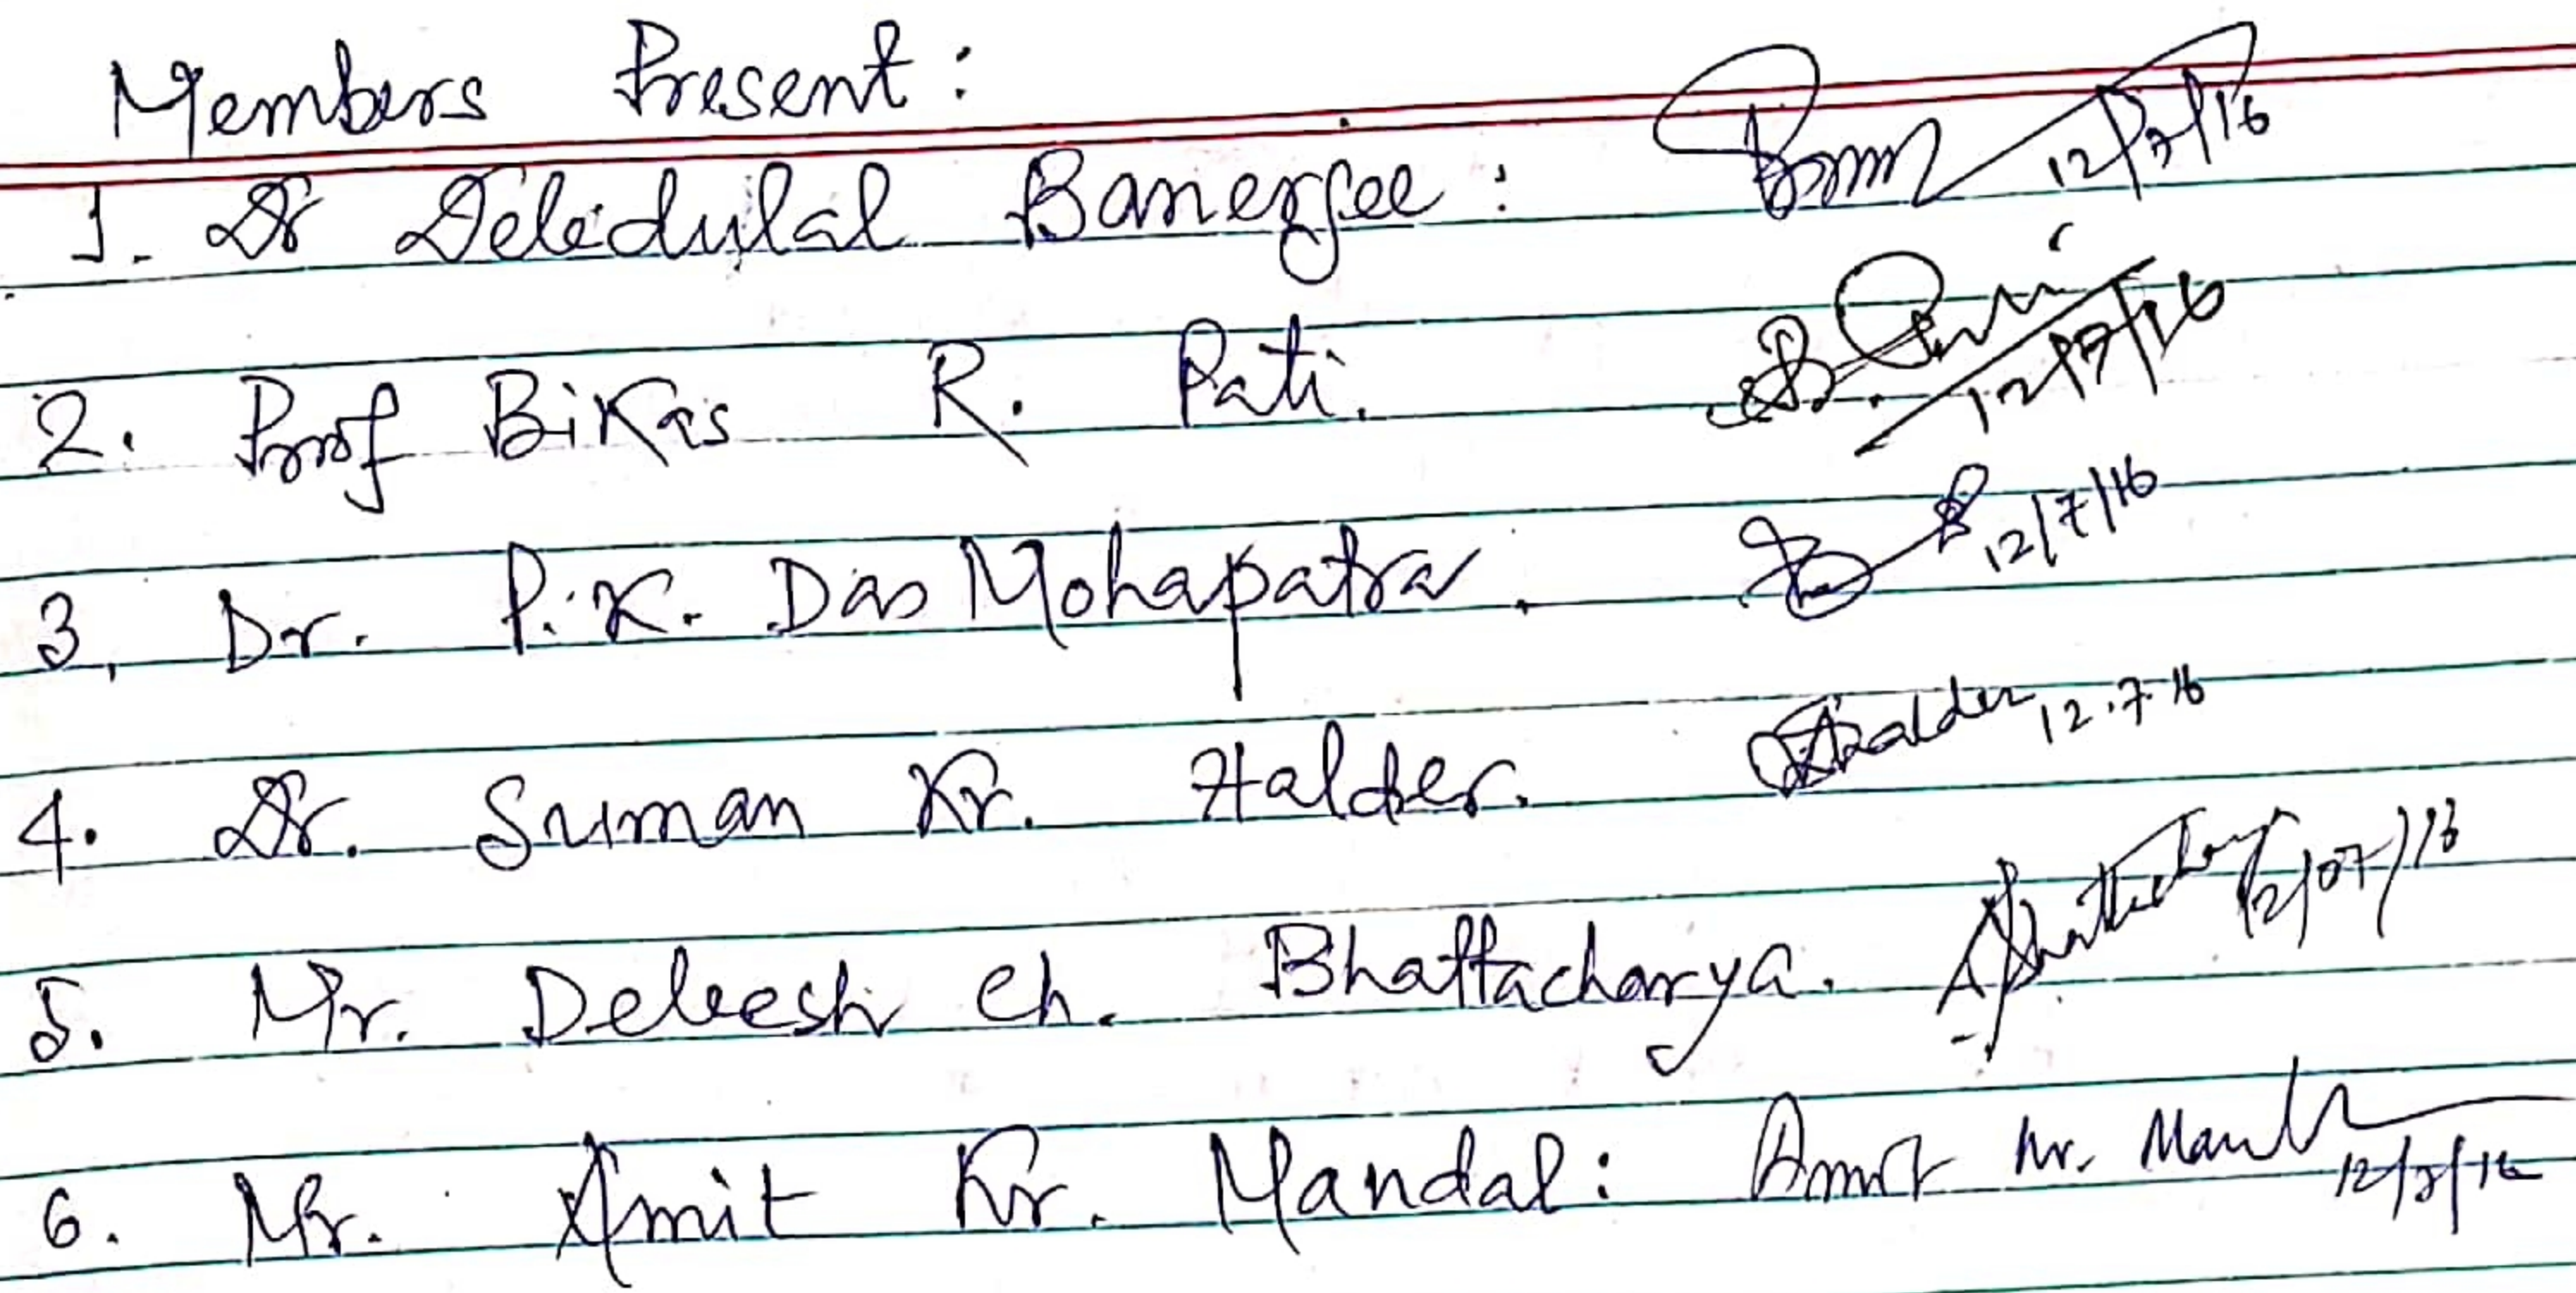 Members Present:
1. Dr Debidulal Banerjee: 12/7/16
2. Prof Bikas R. Pati. 12/7/16
3, Dr. P.K. Das Mohapatra. 12/7/16
4. Dr. Suman Kr. Halder. Halder 12.7.16
5. Mr. Debesh Ch. Bhattacharya. 12/07/16
6. Mr. Amit Kr. Mandal: Amit Kr. Mandal 12/7/16